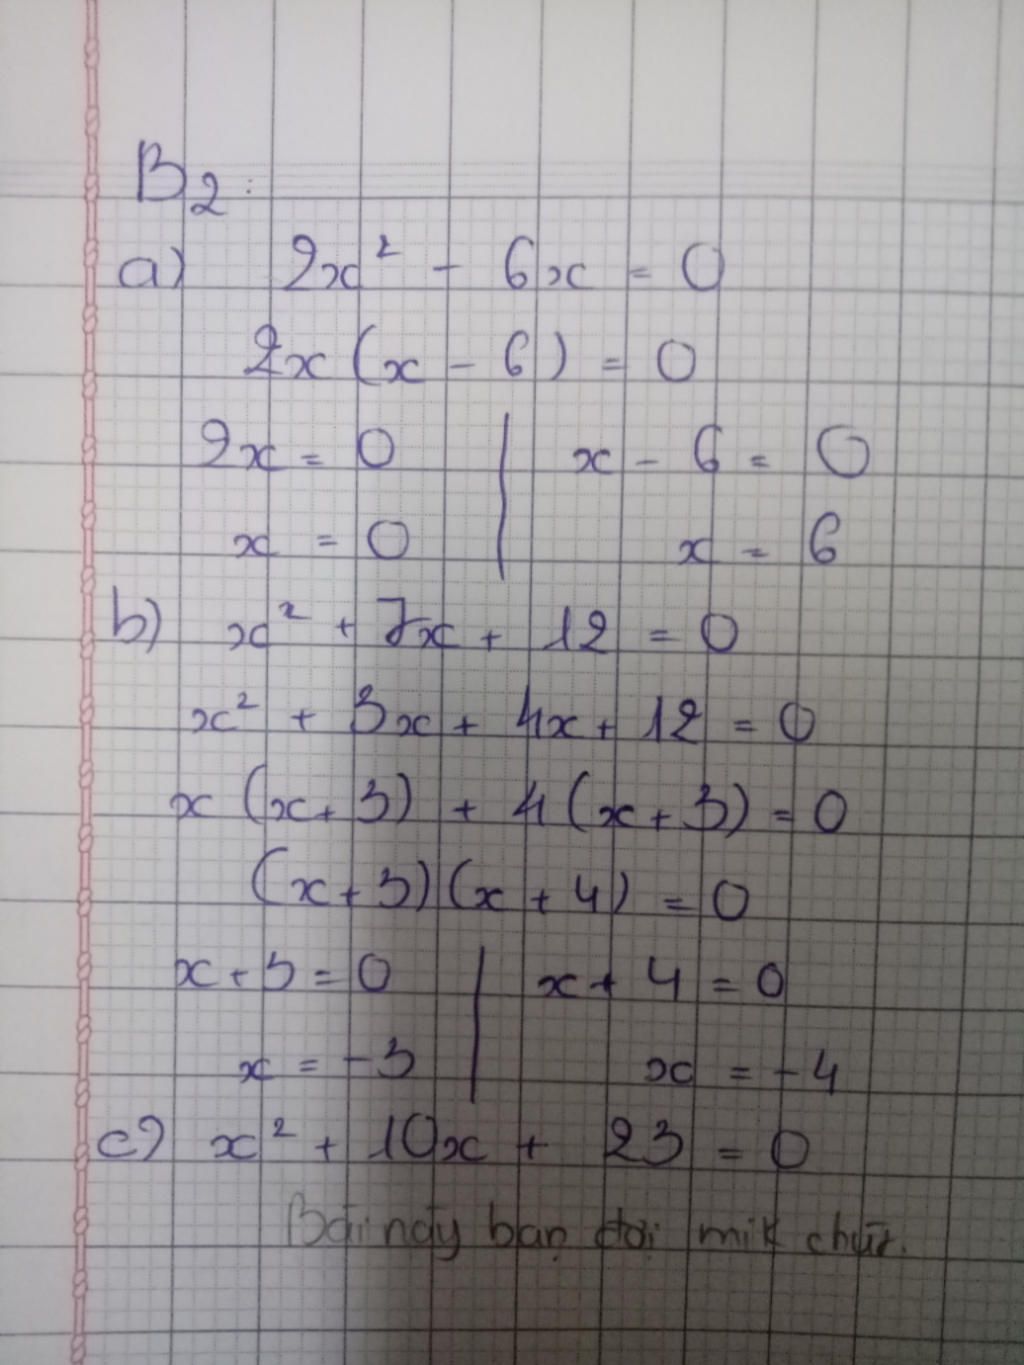 B2:
a) 2x² - 6x = 0
2x (x - 6) = 0
2x = 0 | x - 6 = 0
x = 0 | x = 6
b) x² + 7x + 12 = 0
x² + 3x + 4x + 12 = 0
x (x + 3) + 4 (x + 3) = 0
(x + 3) (x + 4) = 0
x + 3 = 0 | x + 4 = 0
x = -3 | x = -4
c) x² + 10x + 23 = 0
Bài này bạn đợi mik chút.